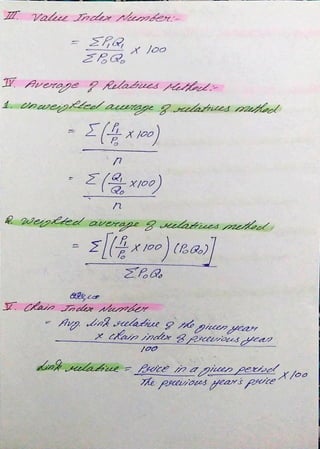 III. Value Index Number:-
= ΣP₁Q₁ / ΣP₀Q₀ × 100
IV Average of Relatives Method:-
1. Unweighted average of relatives method
= Σ(P₁/P₀ × 100) / n
= Σ(Q₁/Q₀ × 100) / n
2. Weighted average of relatives method
= Σ[(P₁/P₀ × 100)(P₀Q₀)] / ΣP₀Q₀
V. Chain Index Number
= Avg. link relative of the given year
× chain index of previous year
100
Link relative = Price in a given period / The previous year's price × 100